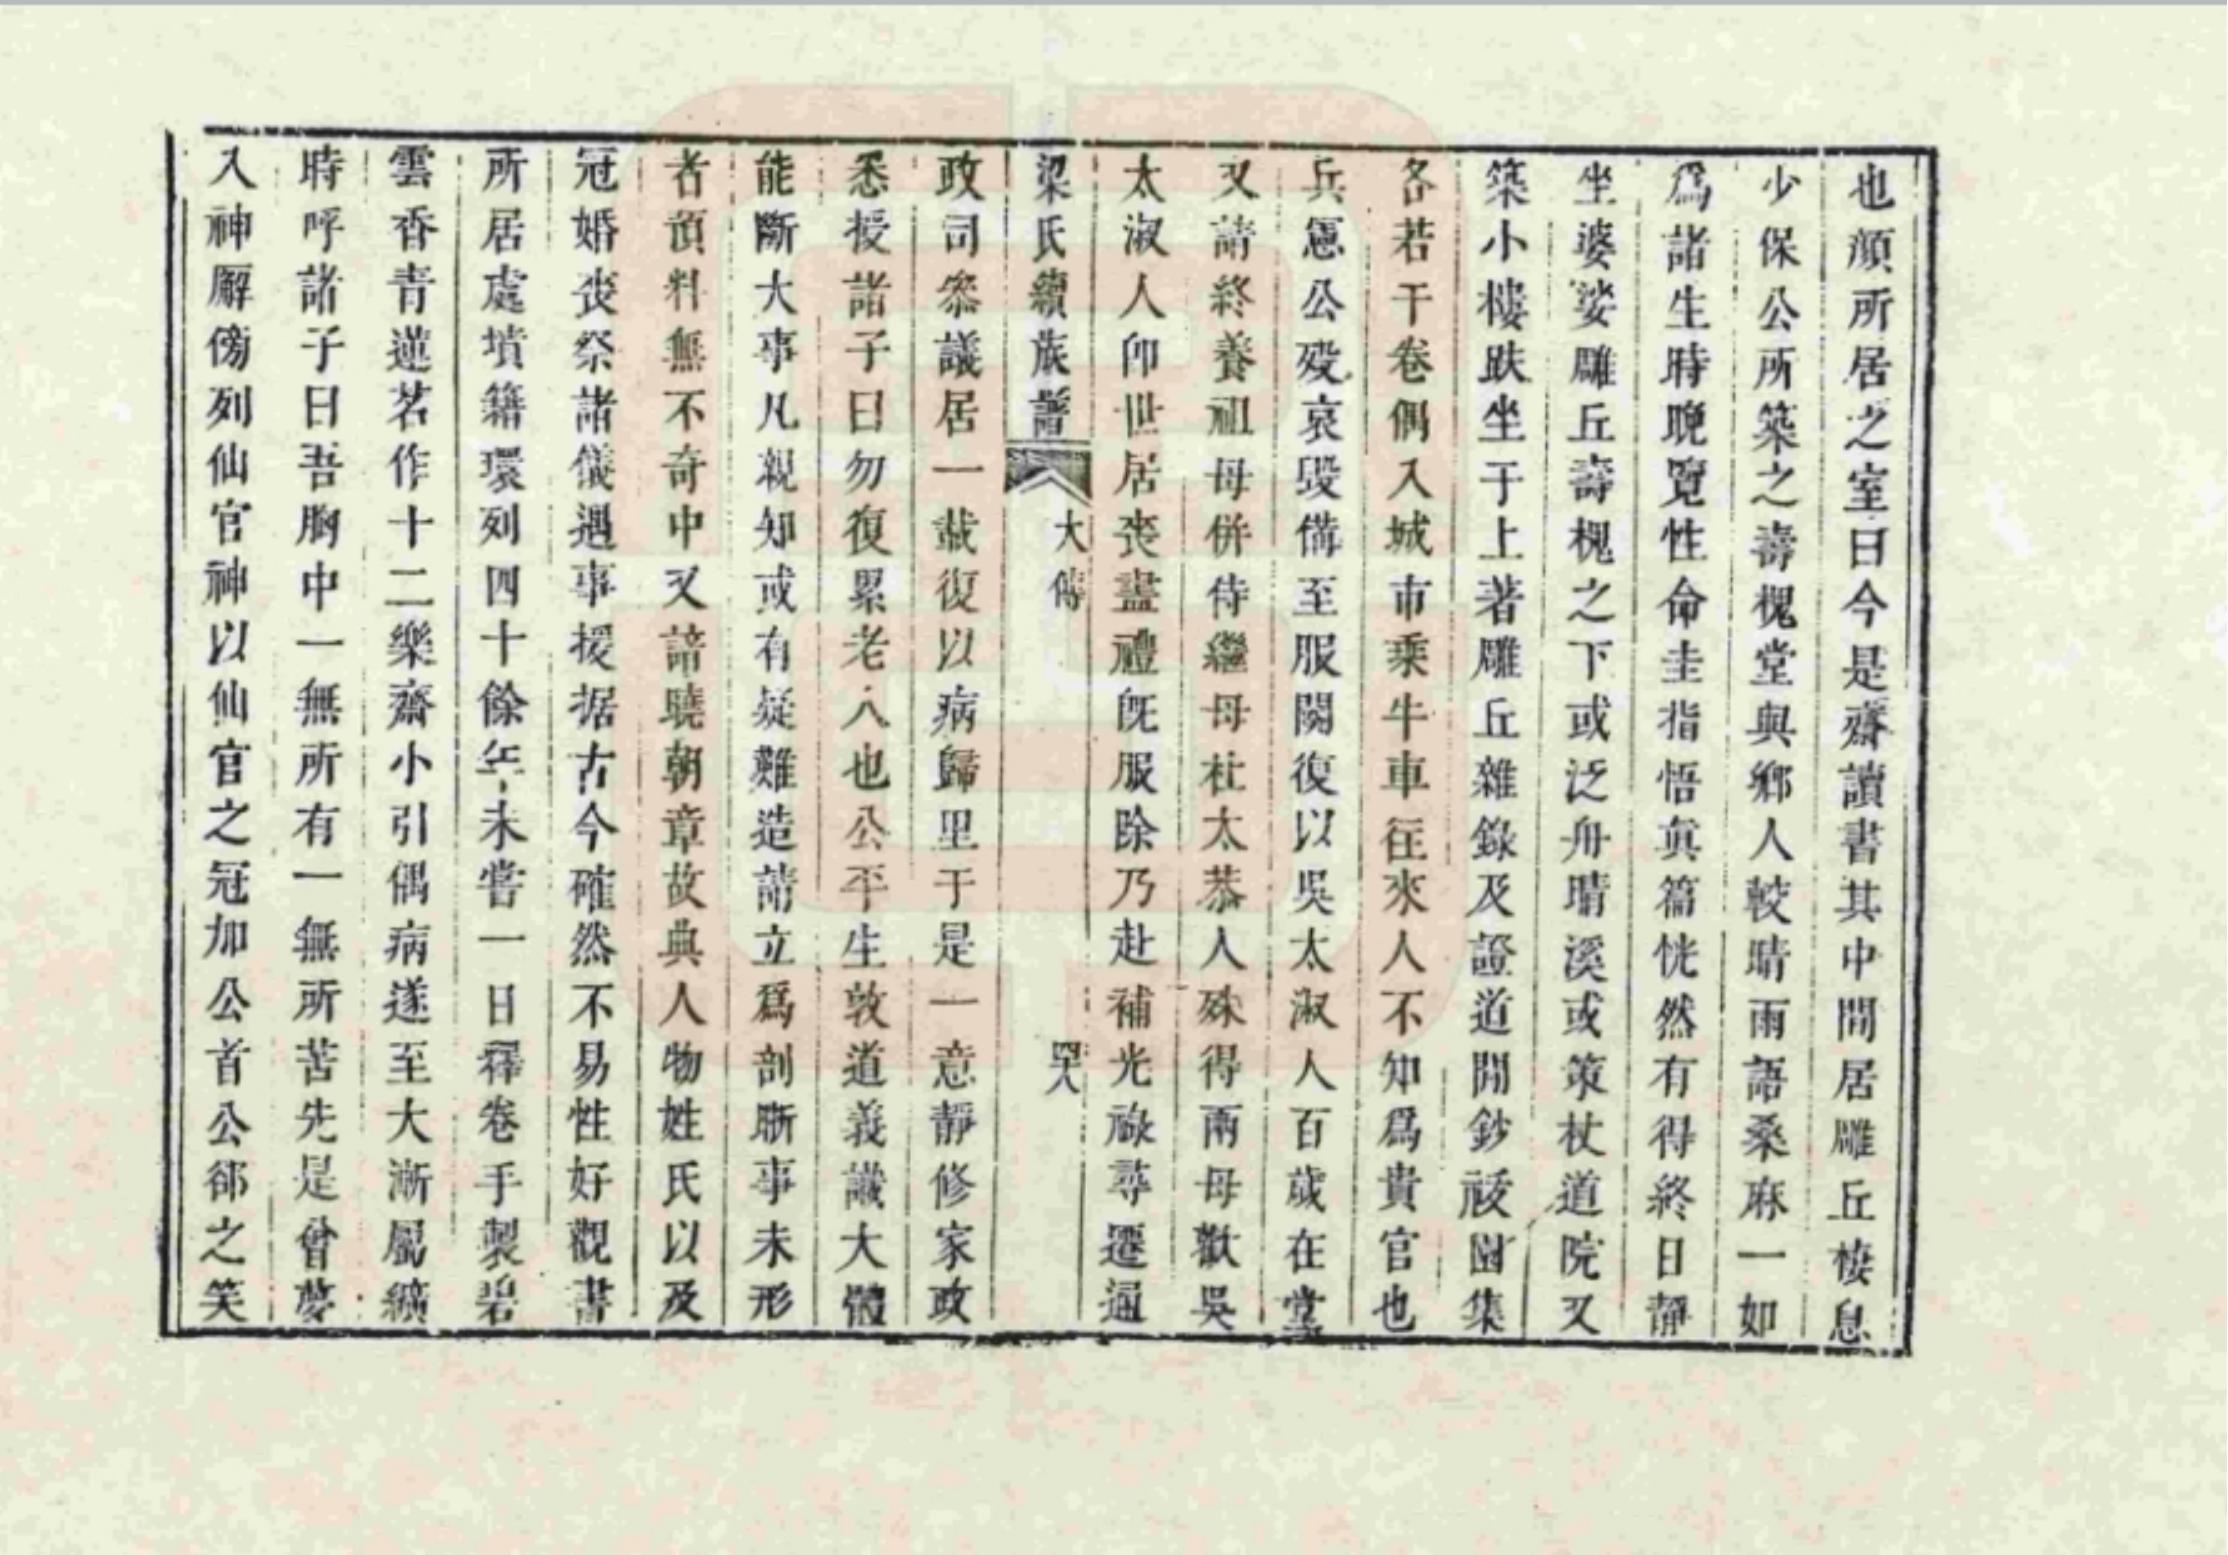 也顏所居之室曰今是齋讀書其中間居雕丘棲息
少保公所築之壽槐堂與鄉人較晴雨語桑麻一如
爲諸生時晚覽性命圭指悟眞篇恍然有得終日靜
坐婆娑雕丘壽槐之下或泛舟晴溪或策杖道院又
築小樓趺坐于上著雕丘雜錄及證道閒鈔祓園集
各若干卷偶入城市乘牛車往來人不知爲貴官也
兵憲公歿哀毀備至服闋復以吳太淑人百歲在堂
又請終養祖母併侍繼母杜太恭人殊得兩母歡吳
太淑人卽世居喪盡禮旣服除乃赴補光祿尋遷通
梁氏續族譜 大傳 四八
政司叅議居一載復以病歸里于是一意靜修家政
悉授諸子曰勿復累老人也公平生敦道義識大體
能斷大事凡親知或有疑難造請立爲剖斷事未形
者預料無不奇中又諳曉朝章故典人物姓氏以及
冠婚喪祭諸儀遇事援据古今確然不易性好觀書
所居處墳籍環列四十餘年未嘗一日釋卷手製碧
雲香青蓮茗作十二樂齋小引偶病遂至大漸屬纊
時呼諸子曰吾胸中一無所有一無所苦先是曾夢
入神廨傍列仙官神以仙官之冠加公首公郤之笑